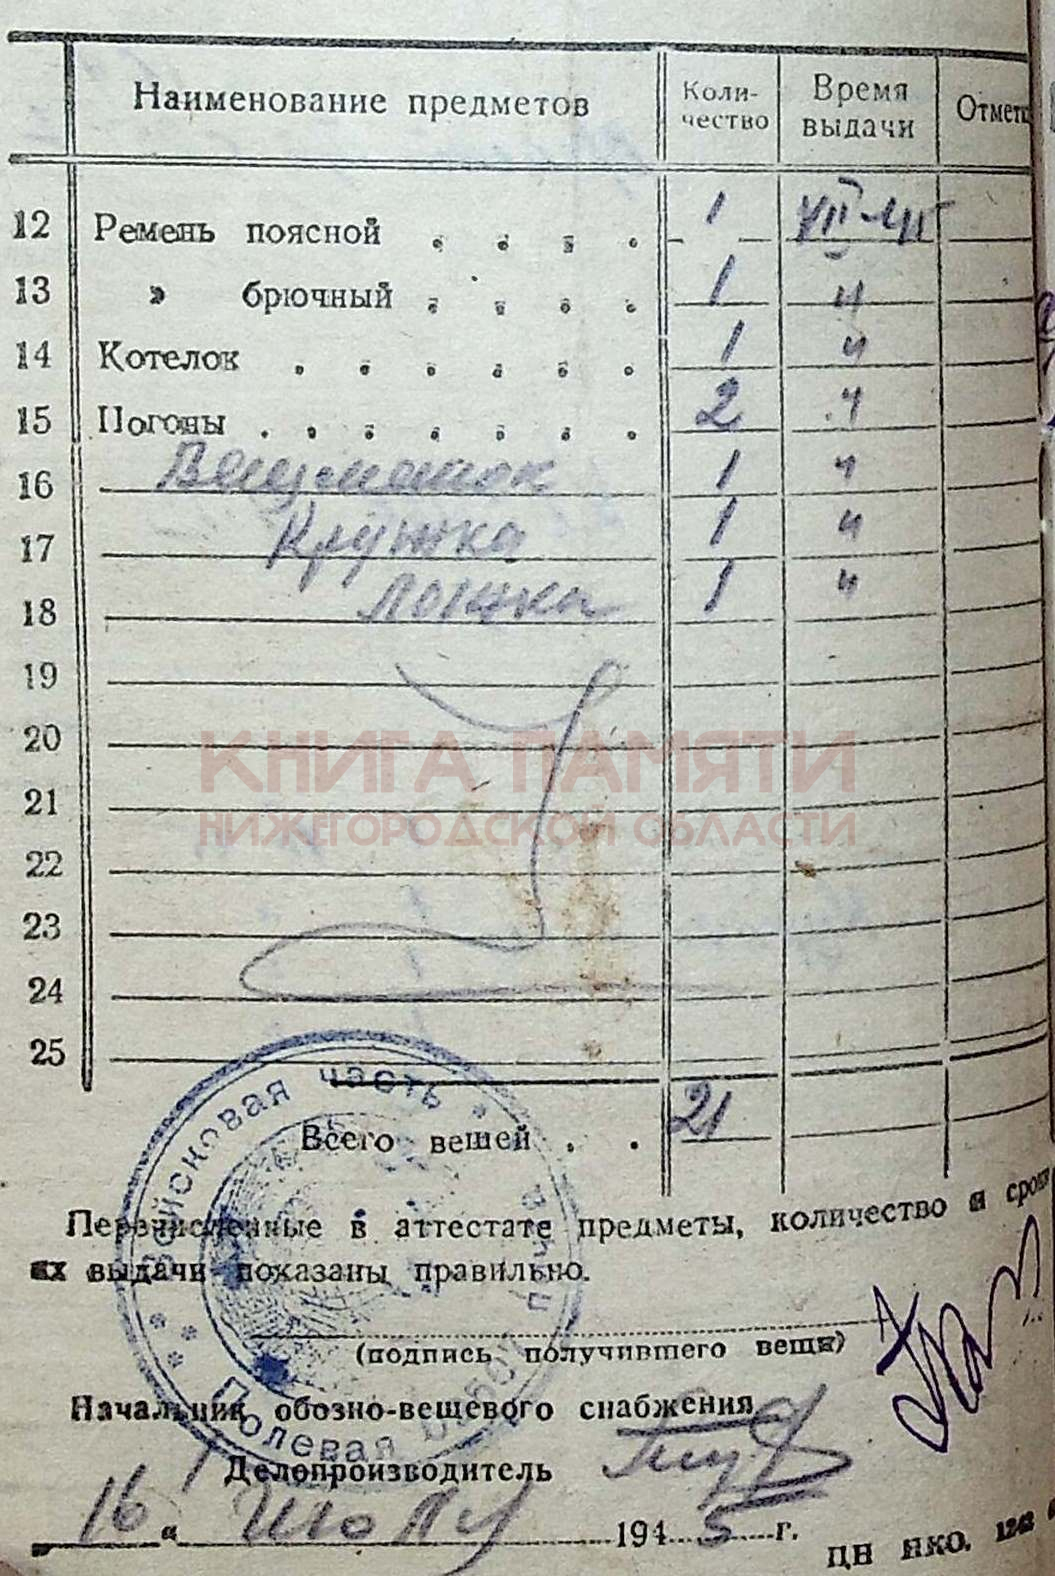 Наименование предметов Коли-чество Время выдачи Отметк
12 Ремень поясной . . . . 1 VII-45
13 » брючный . . . . 1 "
14 Котелок . . . . . . 1 "
15 Погоны . . . . . . 2 "
16 Вещмешок 1 "
17 Кружка 1 "
18 Ложка 1 "
19
20
КНИГА ПАМЯТИ
21
НИЖЕГОРОДСКОЙ ОБЛАСТИ
22
23
24
25
Войсковая часть * Полевая
Всего вещей . . 21
Перечисленные в аттестате предметы, количество и сроки
их выдачи показаны правильно.
(подпись получившего вещи)
Начальник обозно-вещевого снабжения
Делопроизводитель
16 " Июля 1945 г.
ЦН НКО. 1242